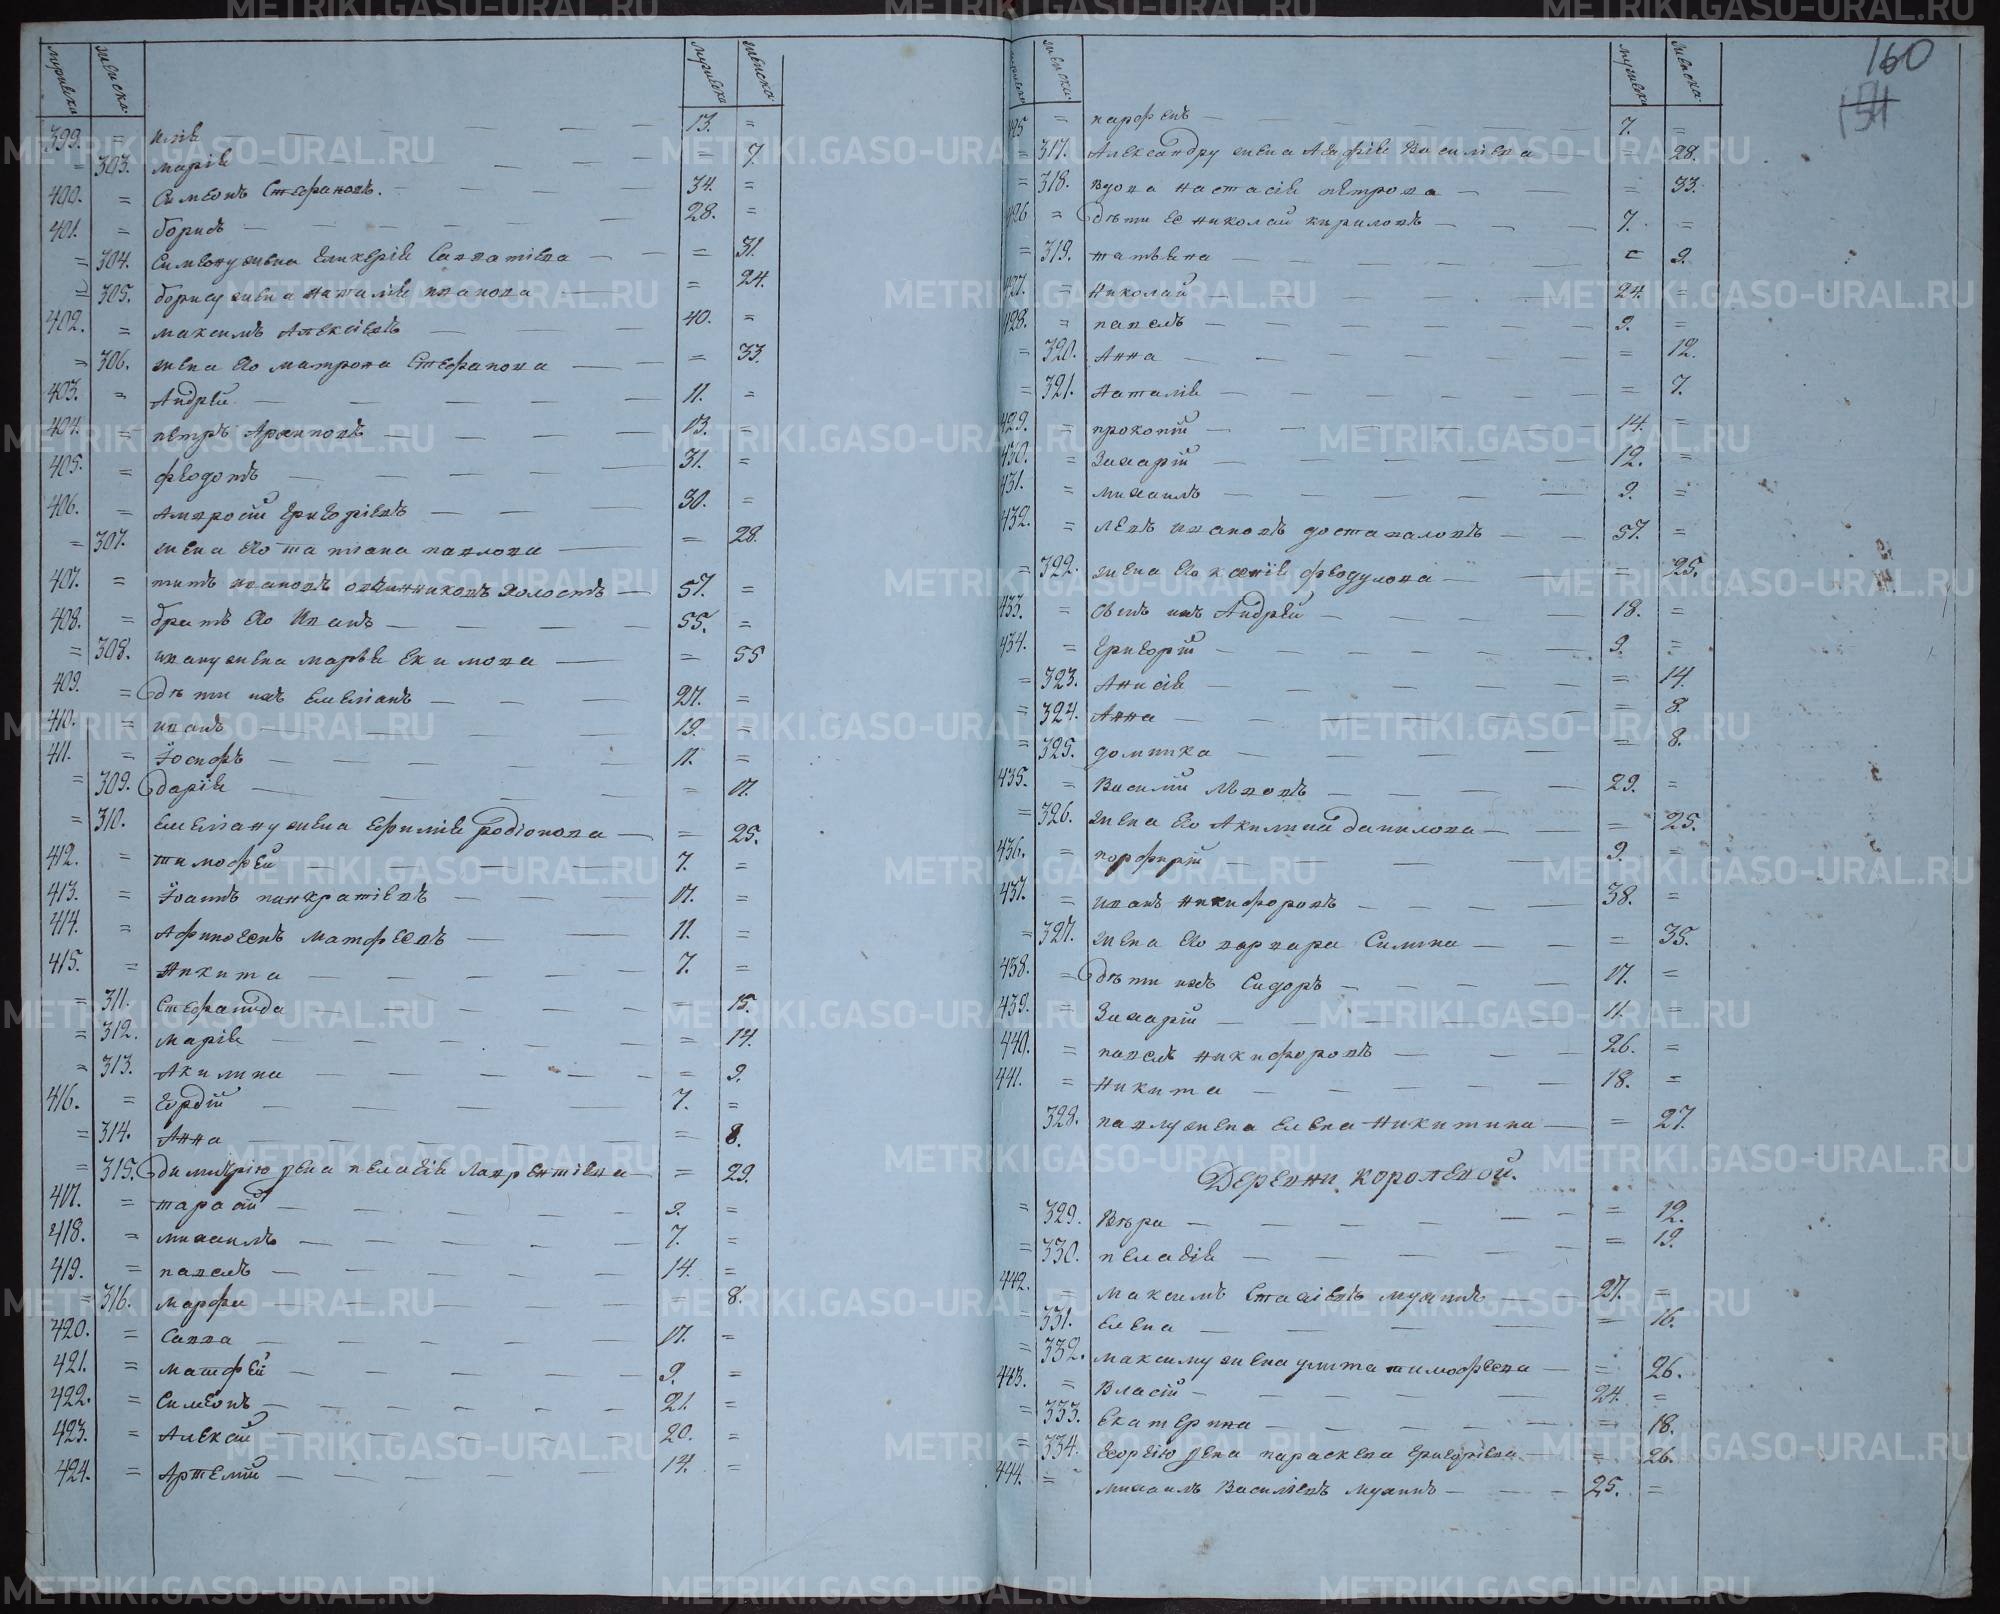 мужеска женска. мужеска женска.
399. = Илiя 13. =
= 303. Марiя = 7.
400. = Симеонъ Стефановъ. 34. =
401. = Борисъ 28. =
= 304. Симеону жена Гликерiя Савватiева = 31.
= 305. Борису жена Наталiя Иванова = 24.
402. = Максимъ Алексiевъ 40. =
= 306. жена его Матрона Стефанова = 33.
403. = Андрей 11. =
404. = Петръ Архиповъ 13. =
405. = Феодотъ 31. =
406. = Амвросiй Григорiевъ 30. =
= 307. жена его Татiана Павлова = 28.
407. = Титъ Ивановъ Овчинниковъ холостъ 57. =
408. = братъ его Иванъ 55. =
= 308. Ивану жена Марья Екимова = 55
409. = дѣти ихъ Емелiанъ 27. =
410. = Иванъ 19. =
411. = Iосифъ 11. =
= 309. Дарiя = 17.
= 310. Емелiану жена Ефимiя Родiонова = 25.
412. = Тимофей 7. =
413. = Iоаннъ Панкратiевъ 17. =
414. = Афиногенъ Матфеевъ 11. =
415. = Никита 7. =
= 311. Стефанида = 15.
= 312. Марiя = 14.
= 313. Акилина = 9.
416. = Гордiй 7. =
= 314. Анна = 8.
= 315. Димитрiю жена Пелагiя Лаврентiева = 29.
417. = Тарасiй 9. =
418. = Михаилъ 7. =
419. = Павелъ 14. =
= 316. Марфа = 8.
420. = Савва 17. =
421. = Матфей 9. =
422. = Симеонъ 21. =
423. = Алексiй 20. =
424. = Артемiй 14. =
160
154
женска. мужеска женска.
425 = Парфенъ 7. =
= 317. Александру жена Агафiя Васильева = 28.
= 318. вдова Настасiя Петрова = 33.
426 = дѣти ее Николай Кириловъ 7. =
= 319. Татьяна = 9.
427. = Николай 24. =
428. = Павелъ 9. =
= 320. Анна = 12.
= 321. Наталiя = 7.
429. = Прокопiй 14. =
430. = Захарiй 12. =
431. = Михаилъ 9. =
432. = Левъ Ивановъ Доставаловъ 57. =
= 322. жена его Ксенiя Феодулова = 25.
433. = сынъ ихъ Андрей 18. =
434. = Григорiй 9. =
= 323. Анисiя = 14.
= 324. Анна = 8.
= 325. Домника = 8.
435. = Василiй Львовъ 29. =
= 326. жена его Акилина Данилова = 25.
436. = Порфирiй 9. =
437. = Иванъ Никифоровъ 38. =
= 327. жена его Варвара Силина = 35.
438. = дѣти ихъ Сидоръ 17. =
439. = Захарiй 11. =
440. = Павелъ Никифоровъ 26. =
441. = Никита 18. =
328. Павлу жена Елена Никитина = 27.
Деревни Королевой.
= 329. Вѣра = 12.
= 330. Пелагiя = 19.
442. = Максимъ Мухинъ 27. =
= 331. Елена = 16.
= 332. Максиму жена Улита Тимофеева = 26.
443. = Власiй 24. =
= 333. Екатерина = 18.
= 334. Георгiю жена Параскева Григорiева = 26.
444. = Михаилъ Василiевъ Мухинъ 25. =
METRIKI.GASO-URAL.RU